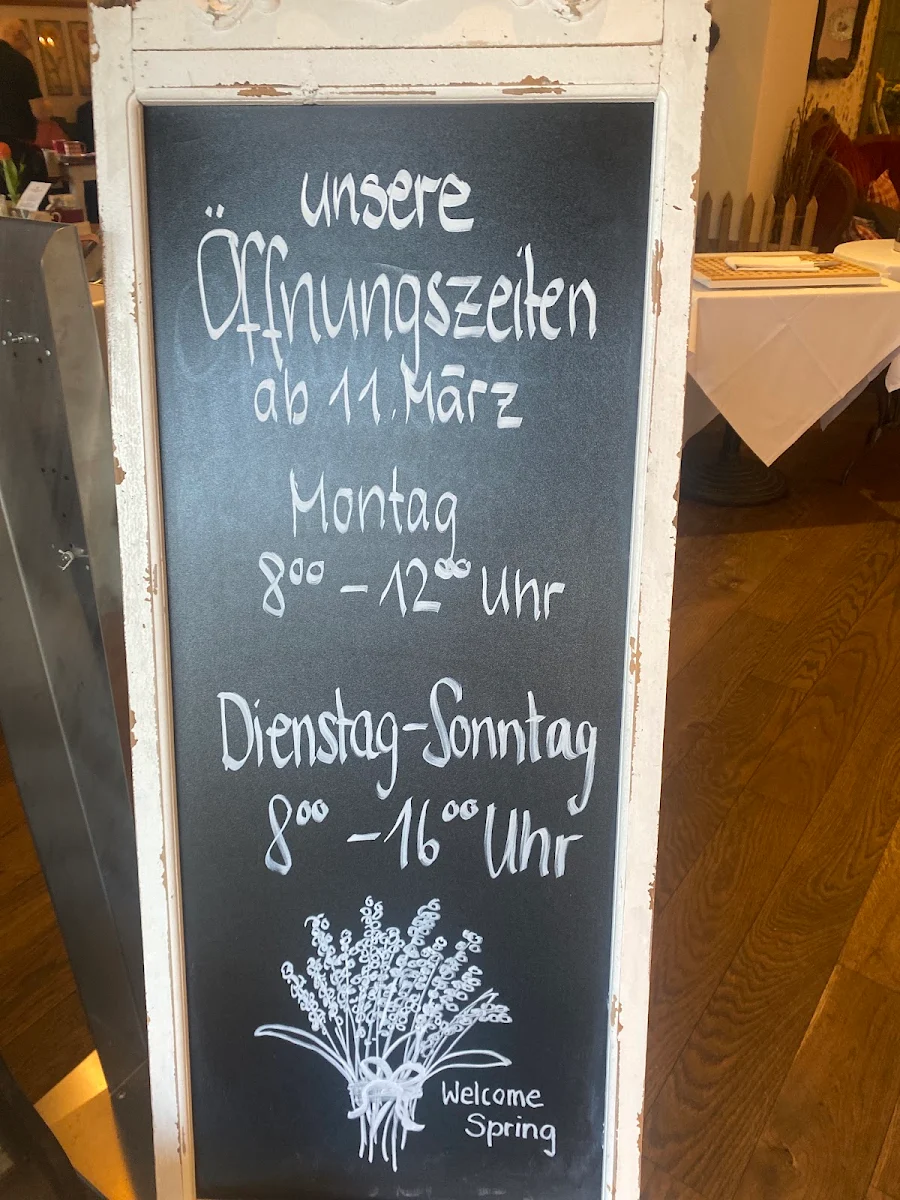 unsere
Öffnungszeiten
ab 11. März
Montag
8⁰⁰ - 12⁰⁰ Uhr
Dienstag-Sonntag
8⁰⁰ - 16⁰⁰ Uhr
Welcome
Spring